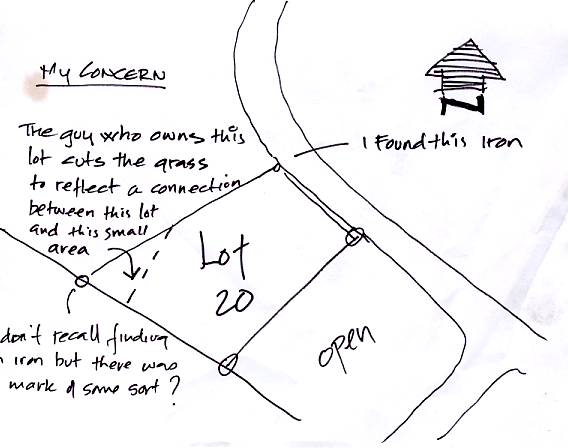 My Concern
The guy who owns this
lot cuts the grass
to reflect a connection
between this lot
and this small
area
I Found this Iron
Lot
20
open
don't recall finding
n iron but there was
mark of some sort?
N